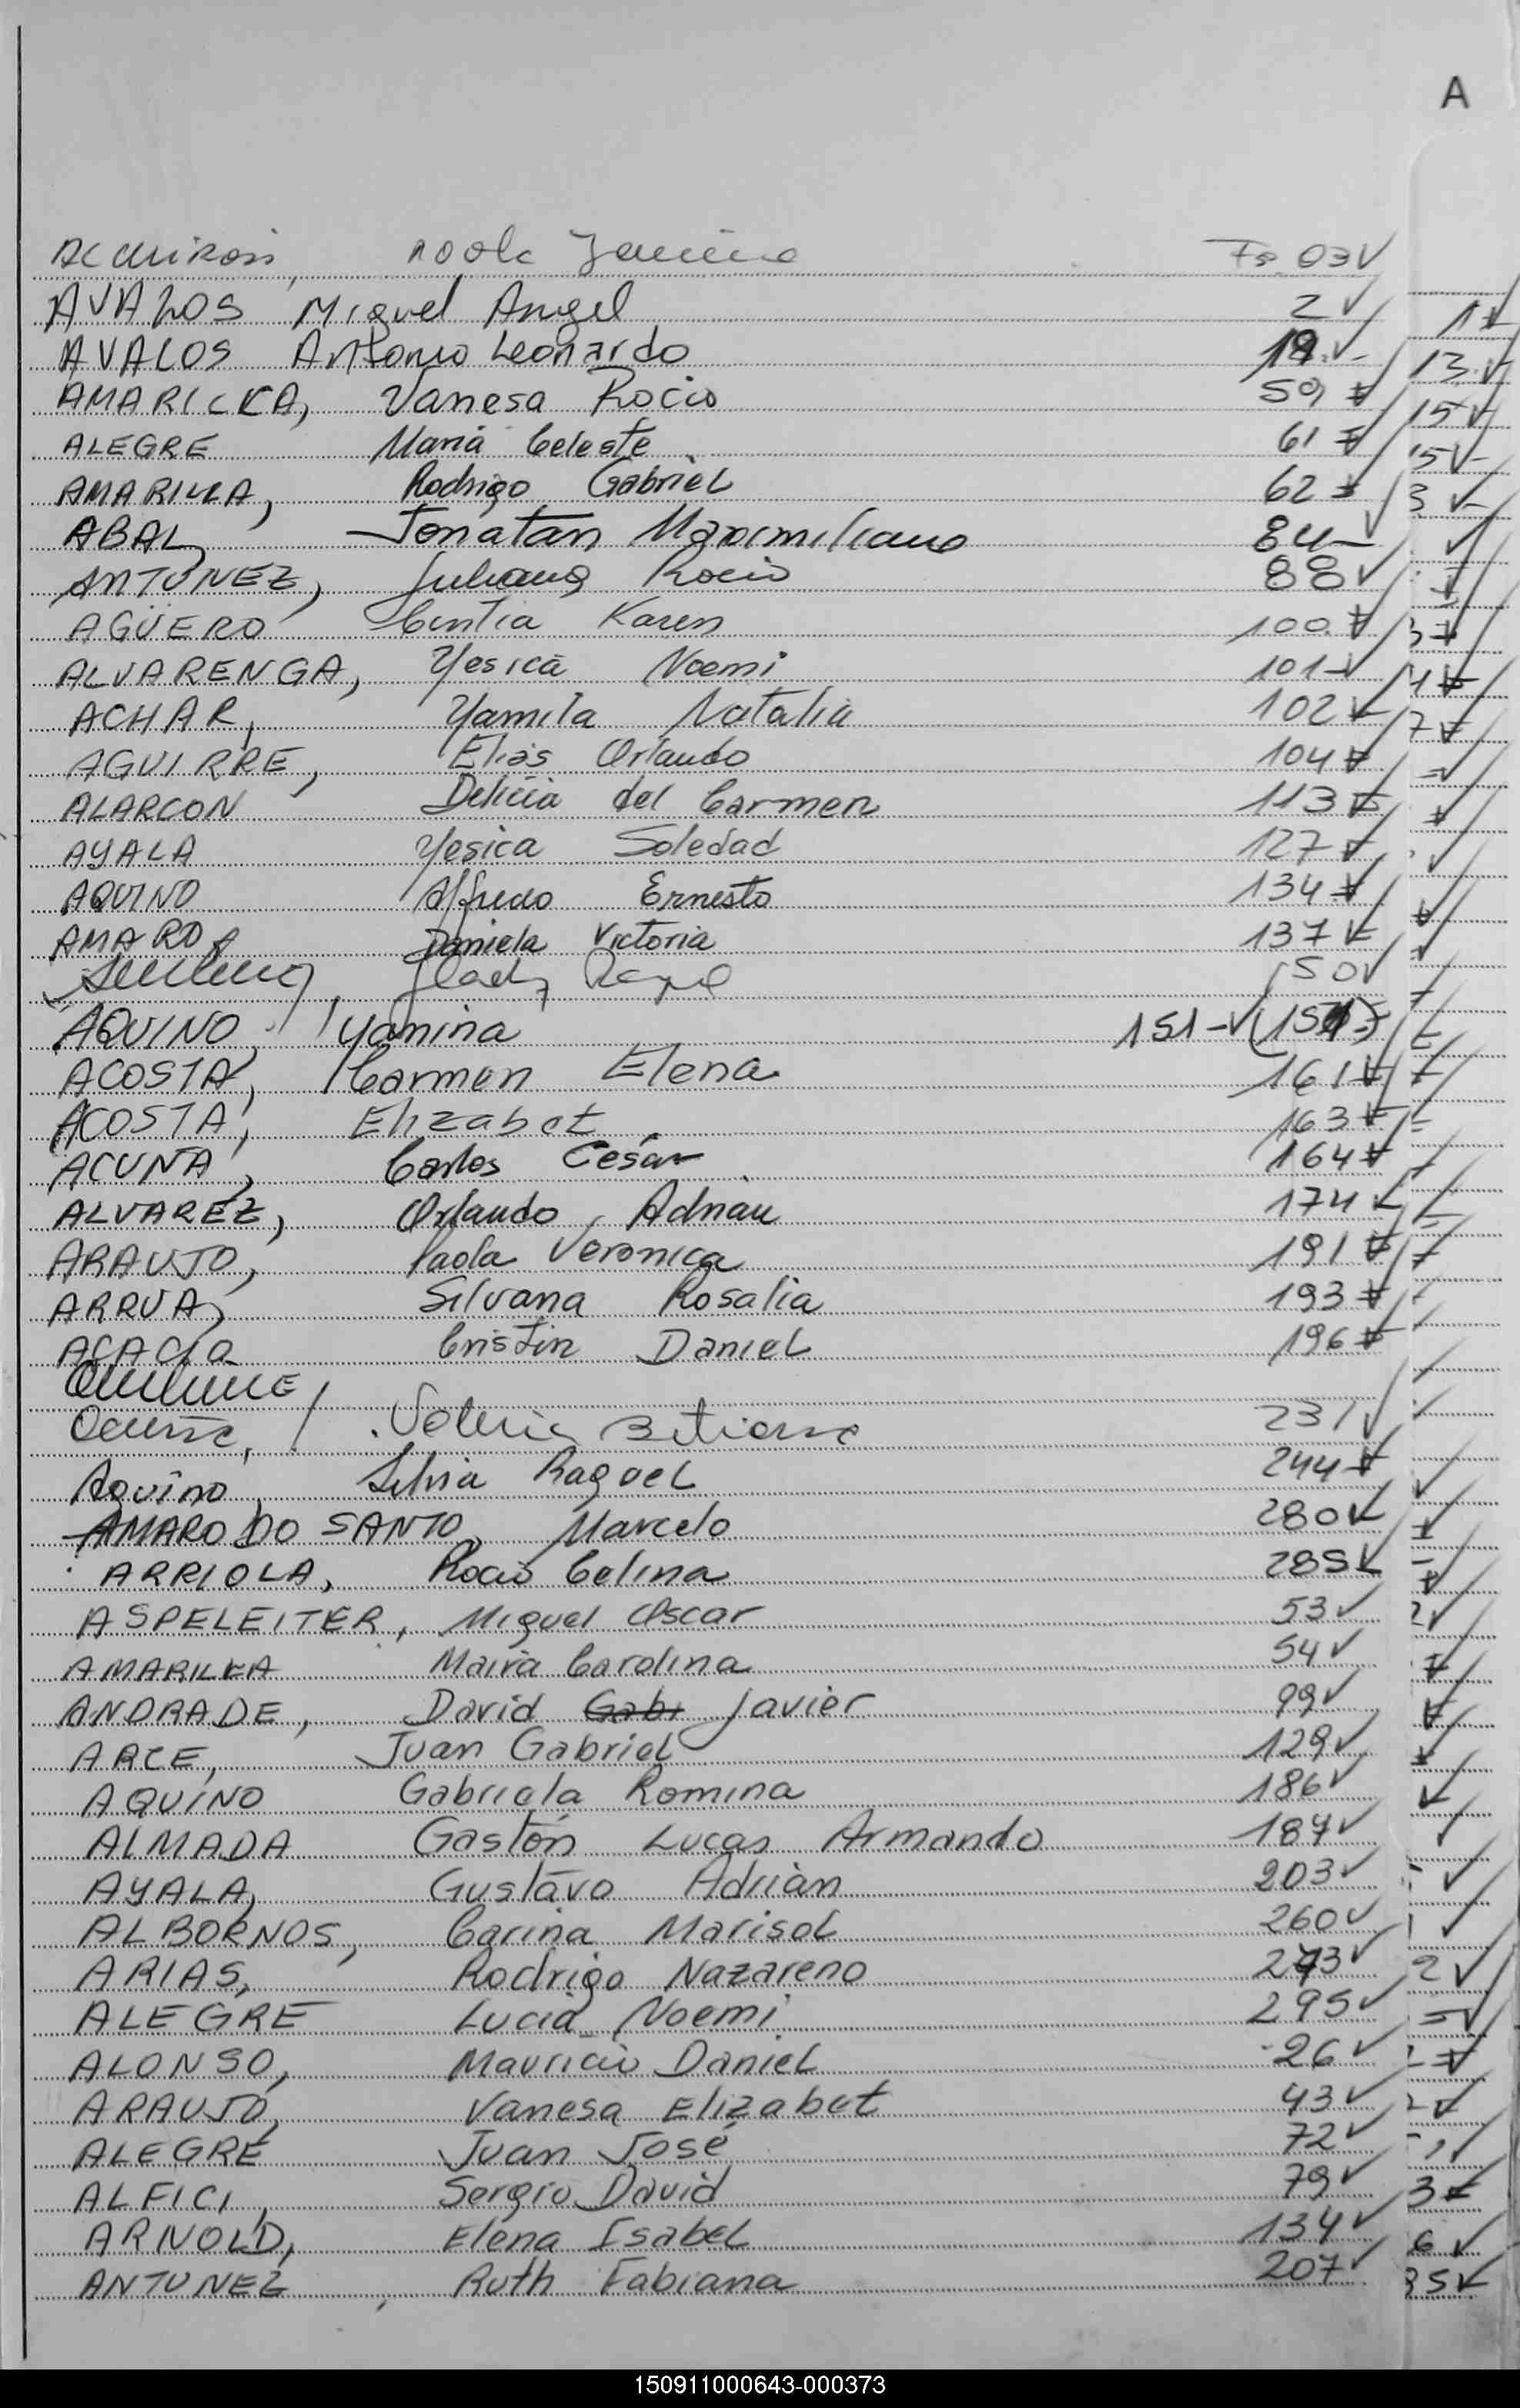 A
Fo 03
AVALOS Miguel Angel 2
AVALOS Antonio Leonardo 19
AMARILLA, Vanesa Rocio 59
ALEGRE Maria Celeste 61
AMARILLA, Rodrigo Gabriel 62
ABAL, Jonatan Maximiliano 84
ANTUNEZ, Juliana Rocio 88
AGÜERO Cintia Karen 100
ALVARENGA, Yesica Noemi 101
ACHAR, Yamila Natalia 102
AGUIRRE, Elias Orlando 104
ALARCON Delicia del Carmen 113
AYALA Yesica Soledad 127
AQUINO Alfredo Ernesto 134
AMARO Daniela Victoria 137
150
AQUINO, Yamina 151
ACOSTA, Carmen Elena 161
ACOSTA, Elizabet 163
ACUÑA, Carlos César 164
ALVAREZ, Orlando Adrián 174
ARAUJO, Paola Veronica 191
ARRUA, Silvana Rosalia 193
Cristin Daniel 196
231
Aquino, Silvia Raquel 244
AMARO DO SANTO, Marcelo 280
ARRIOLA, Rocio Celina 285
ASPELEITER, Miguel Oscar 53
AMARILLA Maira Carolina 54
ANDRADE, David Gabi Javier 99
ARCE, Juan Gabriel 129
AQUINO Gabriela Romina 186
ALMADA Gastón Lucas Armando 187
AYALA, Gustavo Adrián 203
ALBORNOS, Carina Marisol 260
ARIAS, Rodrigo Nazareno 273
ALEGRE Lucia Noemi 295
ALONSO, Mauricio Daniel 26
ARAUJO, Vanesa Elizabet 43
ALEGRE Juan José 72
ALFICI, Sergio David 79
ARNOLD, Elena Isabel 134
ANTUNEZ, Ruth Fabiana 207
150911000643-000373